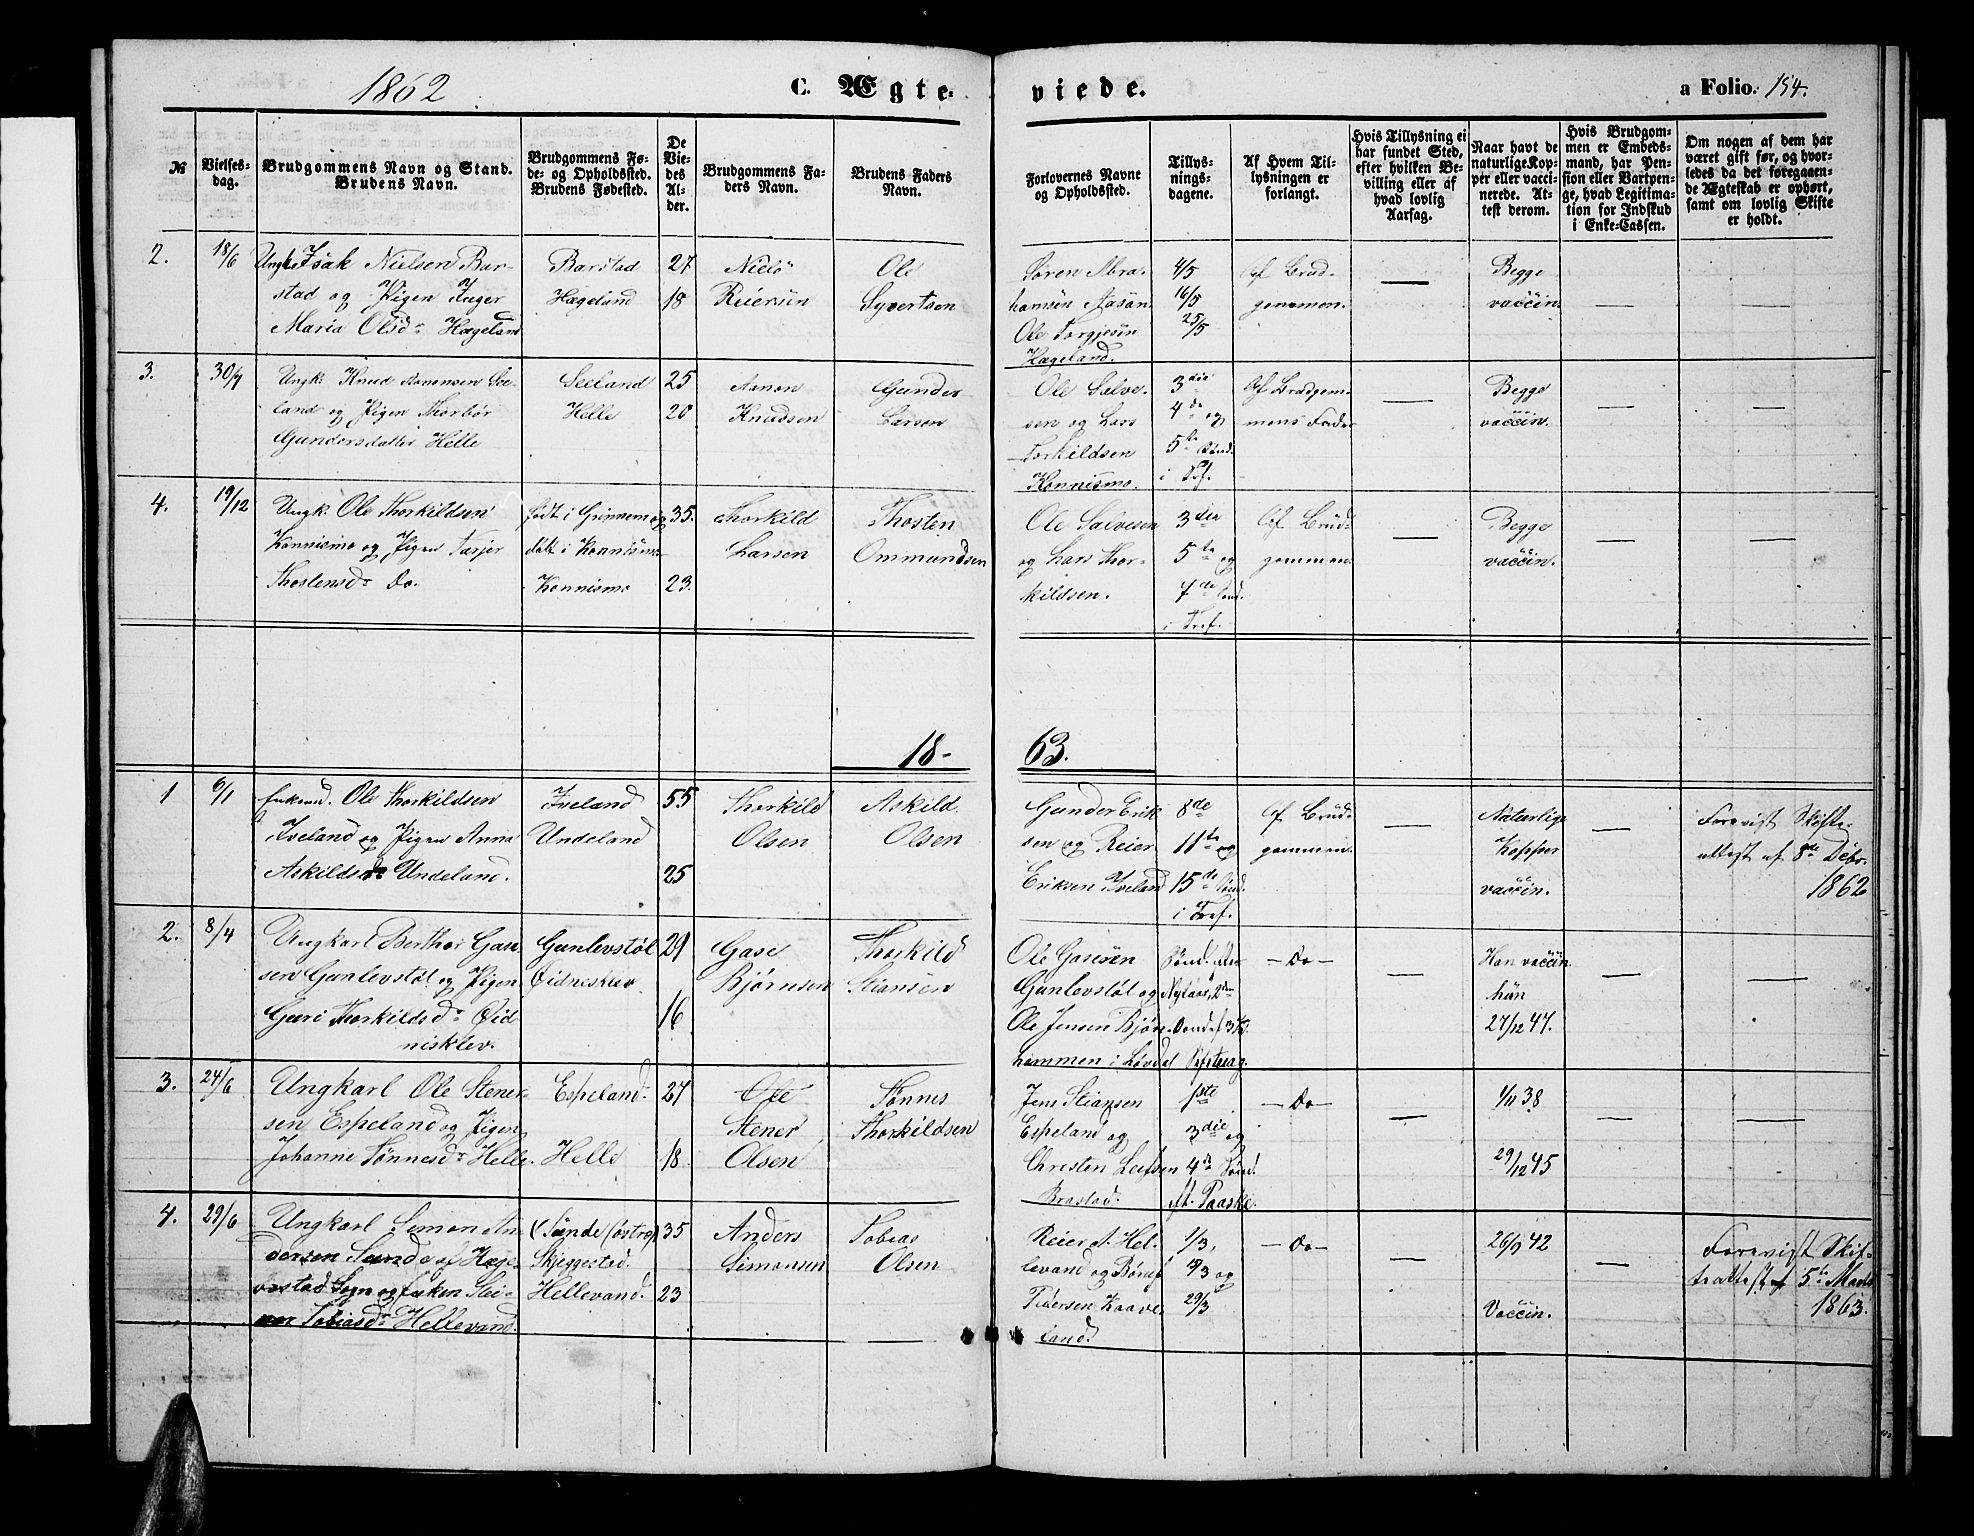 1862
C. Ægte-
viede.
a Folio. 154.
№
Vielses-
dag.
Brudgommens Navn og Stand.
Brudens Navn.
Brudgommens Fø-
de- og Opholdsted.
Brudens Fødested.
De
Vie-
des
Al-
der.
Brudgommens Fa-
ders Navn.
Brudens Faders
Navn.
Forlovernes Navne
og Opholdssted.
Tillys-
nings-
dagene.
Af Hvem Til-
lysningen er
forlangt.
Hvis Tillysning ei
har fundet Sted,
efter hvilken Be-
villing eller af
hvad lovlig
Aarsag.
Naar havt de
naturlige Kop-
per eller vacci-
nerede. At-
test derom.
Hvis Brudgom-
men er Embeds-
mand, har Pen-
sion eller Vartpen-
ge, hvad Legitima-
tion for Indskud
i Enke-Cassen.
Om nogen af dem har
været gift før, og hvor-
ledes da det foregaaen-
de Ægteskab er ophørt,
samt om lovlig Skifte
er holdt.
2.
18/6
Ungk. Isak Nielsen Bar-
stad og Pigen Inger
Maria Olsd. Hægeland
Barstad
Hægeland
27
18
Niels
Reiersen
Ole
Syvertsen
Søren Abra-
hamsen Aasan
Ole Torgjesen
Hægeland.
4/5
16/5
25/5
Af Brud-
gommen.
—
Begge
vaccin.
—
—
3.
30/7
Ungk. Knud Aanonsen See-
land og Pigen Thorbor
Gundersdatter Helle
Seeland
Helle
25
20
Aanon
Knudsen
Gunder
Larsen
Ole Salve-
sen og Lars
Torkildsen
Konnismo.
3die
4de og
5te Sønd.
i Tref.
Af Brudgom-
mens Fader
—
Begge
vaccin.
—
—
4.
19/12
Ungk. Ole Thorkildsen
Konnismo og Pigen Tarjer
Thostensd. Do.
født i Grinnem og
døbt i Konnismo
Konnismo
35.
23.
Thorkild
Larsen
Thosten
Ommundsen
Ole Salvesen
og Lars Thor-
kildsen.
3die
5te og
7de Sønd.
i Tref.
Af Brud-
gommen
—
Begge
vaccin.
—
—
18-
63.
1
6/1
Enkemd. Ole Thorkildsen
Iveland og Pigen Anna
Askildsd. Undeland.
Iveland
Undeland
55
25
Thorkild
Olsen
Askild
Olsen
Gunder Erik-
sen og Reier
Eriksen Iveland
8de
11te og
15de Sønd.
i Tref.
Af Brud-
gommen.
—
Naturlige
Kopper
vaccin.
—
Forevist Skifte-
attest af 8de Debr.
1862
2.
8/4
Ungkarl Berthor Gase-
sen Gunlevstøl og Pigen
Guri Thorkildsd. Øid-
nisklev.
Gunlevstøl
Øidnesklev
29
16
Gase
Bjørnsen
Thorkild
Stiansen
Ole Gasesen
Gunlevstøl og
Ole Jensen Bjørn-
hammen i Løvdal
Sønd. efter
Nytaar, 2den
Sønd. f 3die
Søftreng.
— Do —
—
Han vaccin.
hun
27/12 47.
—
—
3.
24/6
Ungkarl Ole Stener-
sen Espeland og Pigen
Johanne Tønnesd. Helle.
Espeland.
Helle
27
18
Ole
Stener
Olsen
Tønnes
Thorkildsen
Jens Stiansen
Espeland og
Christen Leifsen
Brastad.
1ste
3die og
4de Sønd.
ft. Paaske.
— Do —
—
1/11 38
29/12 45
—
—
4.
29/6
Ungkarl Simon An-
dersen Sunde af Hæge-
bostad Sogn og Enken Stei-
nor Tobiasd. Hellevand.
(Sunde (østre)
Skjeggestad.
Hellevand.
35
23
Anders
Simonsen
Tobias
Olsen
Reier A. Hel-
levand og
Pedersen Kaave-
land.
1/3,
8/3 og
29/3
— Do —
—
26/9 42
Vaccin.
—
Forevist Skif-
teattest af 5te Marts
1863.